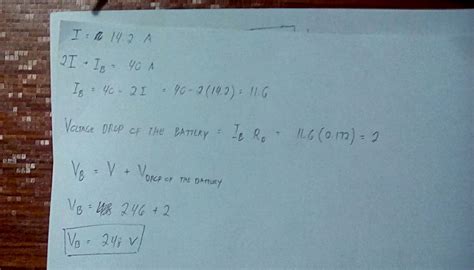 I = 14.2 A
2I + I_B = 40 A
I_B = 40 - 2I = 40 - 2(14.2) = 11.6
VOLTAGE DROP OF THE BATTERY = I_B R_0 = 11.6 (0.172) = 2
V_B = V + V_DROP OF THE BATTERY
V_B = 246 + 2
V_B = 248 V